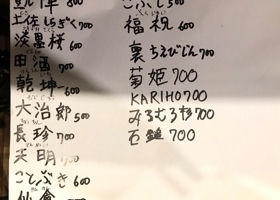 土佐しらぎく 700
淡墨桜 600
田酒 700
乾坤一 600
大治郎 500
長珍 700
天明 700
ことぶき 600
こぶし 500
福祝 600
裏ちえびじん 700
菊姫 700
KARIHO 700
みむろ杉 700
石鎚 700